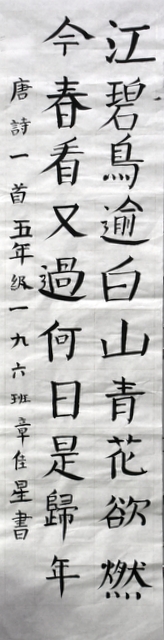 江碧鳥逾白山青花欲燃
今春看又過何日是歸年
唐詩一首五年級一九六班章佳星書